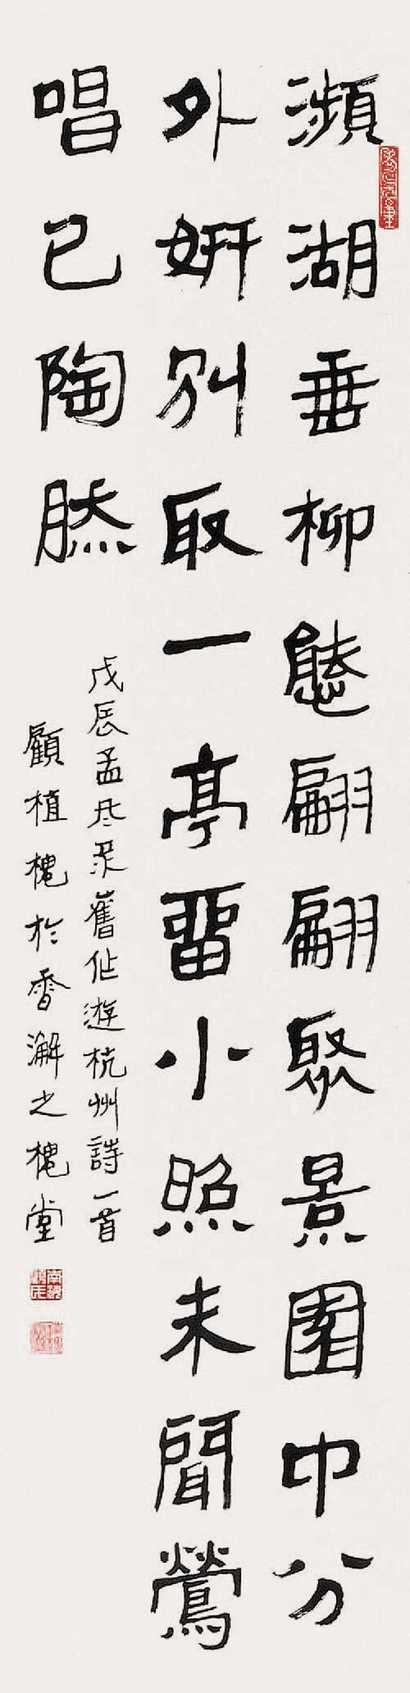 瀕湖垂柳態翩翩聚景園中分
外妍別取一亭畱小照未聞鶯
唱已陶然
戊辰孟冬彔舊作遊杭州詩一首
顧植槐於香澥之槐堂